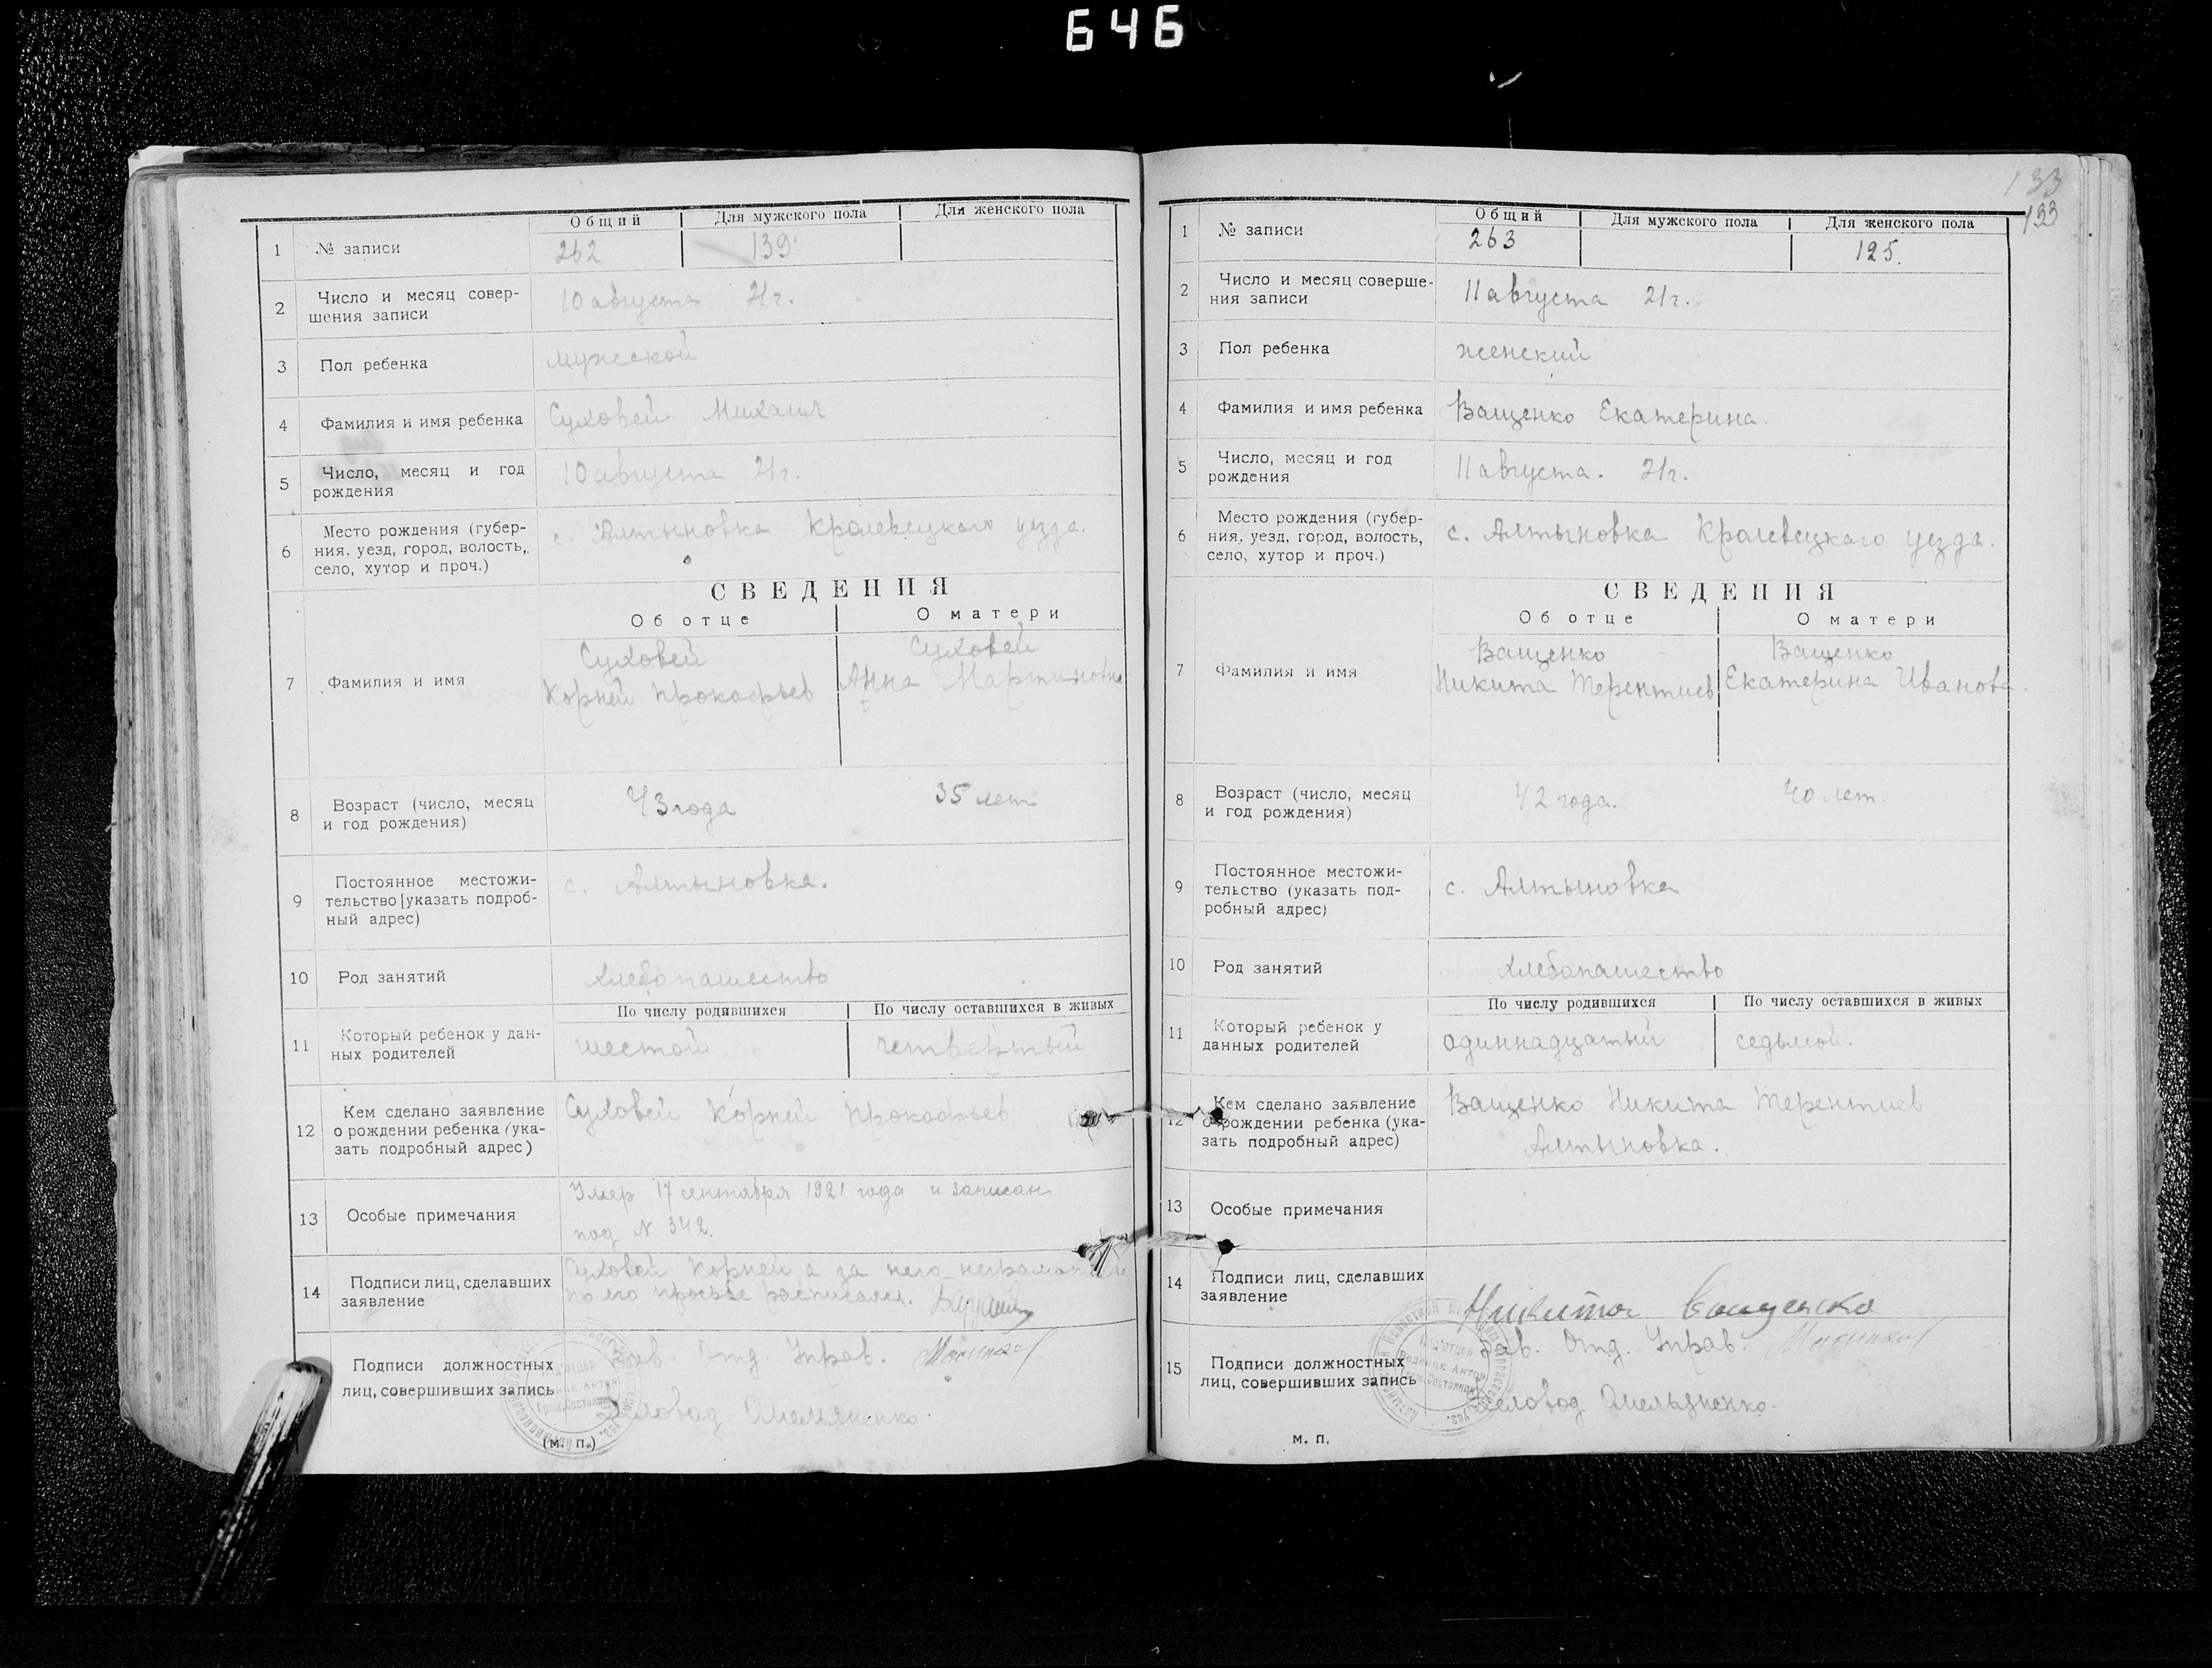 646
133
133
Общий Для мужского пола Для женского пола
1 № записи 262 139
2 Число и месяц совер-
шения записи 10 августа 21 г.
3 Пол ребенка мужской
4 Фамилия и имя ребенка Суховей Михаил
5 Число, месяц и год
рождения 10 августа 21 г.
6 Место рождения (губер-
ния, уезд, город, волость,
село, хутор и проч.) с. Алтыновка Кролевецкаго уезда.
СВЕДЕНИЯ
Об отце О матери
7 Фамилия и имя
Суховей Суховей
Корней Прокофьев Анна Мартиновна
8 Возраст (число, месяц
и год рождения) 43 года 35 лет
9 Постоянное местожи-
тельство [указать подроб-
ный адрес) с. Алтыновка.
10 Род занятий хлебопашество
По числу родившихся По числу оставшихся в живых
11 Который ребенок у дан-
ных родителей шестой четвертый
12 Кем сделано заявление
о рождении ребенка (ука-
зать подробный адрес) Суховей Корней Прокофьев
13 Особые примечания
Умер 17 сентября 1921 года и записан
под № 342.
14 Подписи лиц, сделавших
заявление
Суховей Корней а за него
по его просьбе расписался.
Подписи должностных
лиц, совершивших запись
Зав. Отд. Управ.
Деловод Омельяненко.
(м. п.)
Общий Для мужского пола Для женского пола
1 № записи 263 125.
2 Число и месяц соверше-
ния записи 11 августа 21 г.
3 Пол ребенка женский
4 Фамилия и имя ребенка Ващенко Екатерина.
5 Число, месяц и год
рождения 11 августа. 21 г.
6 Место рождения (губер-
ния, уезд, город, волость,
село, хутор и проч.) с. Алтыновка Кролевецкаго уезда.
СВЕДЕНИЯ
Об отце О матери
7 Фамилия и имя
Ващенко Ващенко
Никита Терентиев Екатерина Иванова.
8 Возраст (число, месяц
и год рождения) 42 года. 40 лет.
9 Постоянное местожи-
тельство (указать под-
робный адрес) с. Алтыновка
10 Род занятий хлебопашество
По числу родившихся По числу оставшихся в живых
11 Который ребенок у
данных родителей одиннадцатый седьмой.
12 Кем сделано заявление
о рождении ребенка (ука-
зать подробный адрес)
Ващенко Никита Терентиев
Алтыновка.
13 Особые примечания
14 Подписи лиц, сделавших
заявление Никита Ващенко
15 Подписи должностных
лиц, совершивших запись
Зав. Отд. Управ.
Деловод Омельяненко.
м. п.